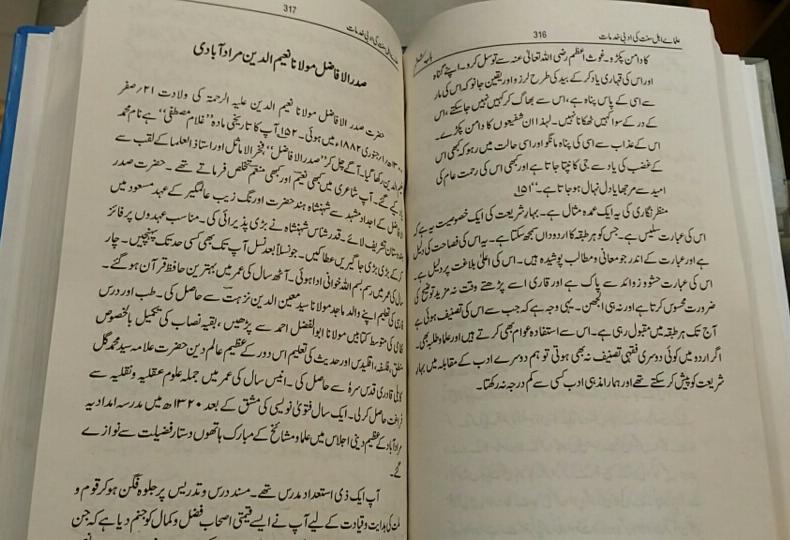 علمائے اہل سنت کی ادبی خدمات
316
کا دامن پکڑو۔ غوث اعظم رضی اللہ تعالیٰ عنہ سے توسل کرو۔ اپنے گناہ
اور اس کی قہاری یاد کر کے بید کی طرح لرزو اور یقین جانو کہ اس کی مار
سے اسی کے پاس پناہ ہے، اس سے بھاگ کر کہیں نہیں جا سکتے، اس
کے در کے سوا کہیں ٹھکانا نہیں۔ لہذا ان شفیعوں کا دامن پکڑے،
اس کے عذاب سے اسی کی پناہ مانگو اور اسی حالت میں رہو کہ کبھی اس
کے غضب کی یاد سے جی کانپا جاتا ہے اور کبھی اس کی رحمت عام کی
امید سے مرجھایا دل نہال ہو جاتا ہے۔“ ۱۵۱
منظر نگاری کی یہ ایک عمدہ مثال ہے۔ بہار شریعت کی ایک خصوصیت یہ ہے کہ
اس کی عبارت سلیس ہے۔ جس کو ہر طبقہ کا اردو داں سمجھ سکتا ہے۔ یہ اس کی فصاحت کی دلیل
ہے اور عبارت کے اندر جو معانی و مطالب پوشیدہ ہیں۔ اس کی اعلیٰ بلاغت پر دلیل ہے۔
اس کی عبارت حشو و زوائد سے پاک ہے اور قاری اسے پڑھتے وقت نہ مزید توضیح کی
ضرورت محسوس کرتا ہے اور نہ ہی الجھن۔ یہی وجہ ہے کہ جب سے اس کی تصنیف ہوئی ہے
آج تک ہر طبقہ میں مقبول رہی ہے۔ اس سے استفادہ عوام بھی کرتے ہیں اور علما و طلبہ بھی۔
اگر اردو میں کوئی دوسری فقہی تصنیف نہ بھی ہوتی تو ہم دوسرے ادب کے مقابلہ میں بہار
شریعت کو پیش کر سکتے تھے اور ہمارا مذہبی ادب کسی سے کم درجہ نہ رکھتا۔
317
صدر الافاضل مولانا نعیم الدین مراد آبادی
حضرت صدر الافاضل مولانا نعیم الدین علیہ الرحمۃ کی ولادت ۲۱ صفر
۱۳۰۰ھ؍ جنوری ۱۸۸۲ء میں ہوئی۔ ۱۵۲ آپ کا تاریخی مادہ ”غلام مصطفیٰ“ ہے نام محمد
نعیم الدین رکھا گیا۔ آگے چل کر ”صدر الافاضل“، فخر الاماثل اور استاذ العلما کے لقب سے
یاد کیے گئے۔ آپ شاعری میں کبھی نعیم اور کبھی منعم تخلص فرماتے تھے۔ حضرت صدر
الافاضل کے اجداد مشہد سے شہنشاہ ہند حضرت اورنگ زیب عالمگیر کے عہد مسعود میں
ہندوستان تشریف لائے۔ قدر شناس شہنشاہ نے بڑی پذیرائی کی۔ مناسب عہدوں پر فائز
کر کے بڑی بڑی جاگیریں عطا کیں۔ جو نسلاً بعد نسل آپ تک بھی کسی حد تک پہنچیں۔ چار
سال کی عمر میں رسم بسم اللہ خوانی ادا ہوئی۔ آٹھ سال کی عمر میں بہترین حافظ قرآن ہو گئے۔
فارسی کی تعلیم اپنے والد ماجد مولانا سید معین الدین نزہت سے حاصل کی۔ طب اور درس
نظامی کی متوسط کتابیں مولانا ابوالفضل احمد سے پڑھیں، بقیہ نصاب کی تکمیل بالخصوص
منطق، فلسفہ، اقلیدس اور حدیث کی تعلیم اس دور کے عظیم عالم دین حضرت علامہ سید محمد گل
کابلی قادری قدس سرہٗ سے حاصل کی۔ انیس سال کی عمر میں جملہ علوم عقلیہ و نقلیہ سے
فراغت حاصل کر لی۔ ایک سال فتویٰ نویسی کی مشق کے بعد ۱۳۲۰ھ میں مدرسہ امدادیہ
مراد آباد کے عظیم دینی اجلاس میں علما و مشائخ کے مبارک ہاتھوں دستار فضیلت سے نوازے
گئے۔
آپ ایک ذی استعداد مدرس تھے۔ مسند درس و تدریس پر جلوہ فگن ہو کر قوم و
ملت کی ہدایت و قیادت کے لیے آپ نے ایسے قیمتی اصحاب فضل و کمال کو جنم دیا ہے کہ جن